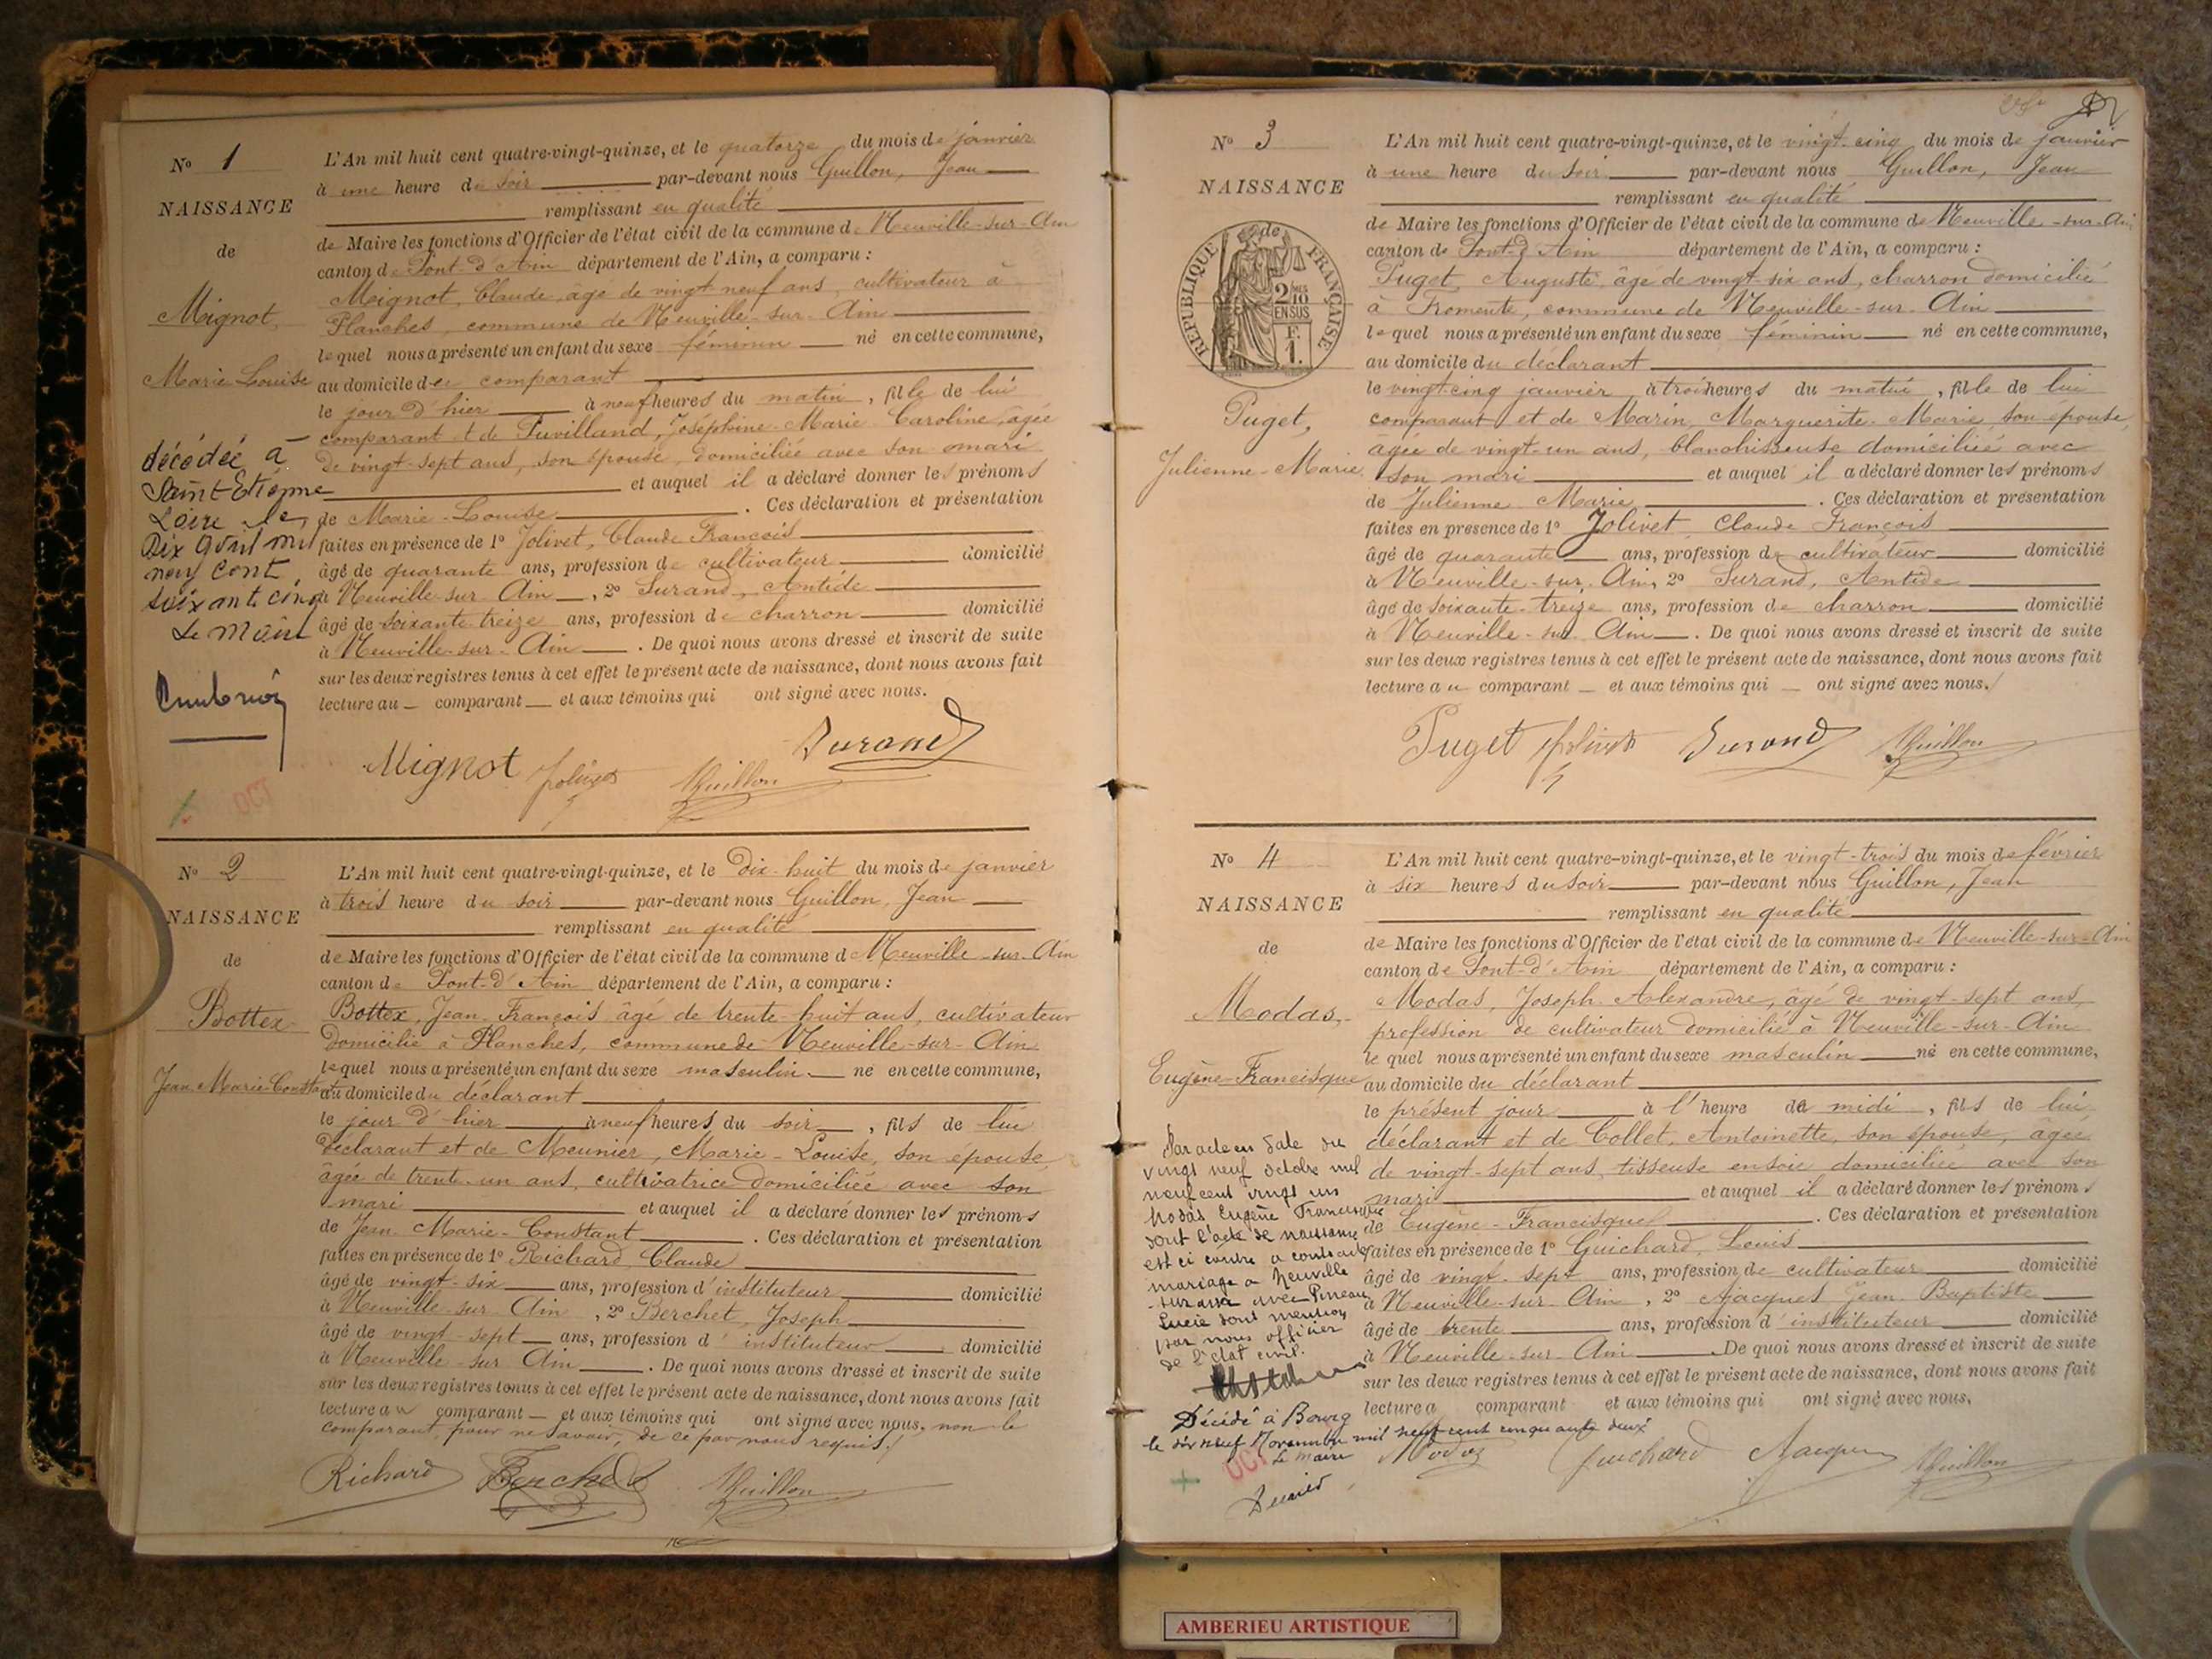 N° 1
NAISSANCE
de
Mignot,
Marie Louise
décédée à
Saint-Etienne
Loire le
Dix avril mil
neuf cent
soixante cinq
Le Maire
L'An mil huit cent quatre-vingt-quinze, et le quatorze du mois de janvier
à une heure du soir par-devant nous Guillon, Jean
remplissant en qualité
de Maire les fonctions d'Officier de l'état civil de la commune de Neuville-sur-Ain
canton de Pont-d'Ain département de l'Ain, a comparu :
Mignot, Claude, âgé de vingt neuf ans, cultivateur à
Planches, commune de Neuville-sur-Ain
lequel nous a présenté un enfant du sexe féminin né en cette commune,
au domicile du comparant
le jour d'hier à neuf heures du matin, fille de lui
comparant et de Fuvilland, Joséphine Marie Caroline, âgée
de vingt-sept ans, son épouse, domiciliée avec son mari
et auquel il a déclaré donner les prénoms
de Marie-Louise. Ces déclaration et présentation
faites en présence de 1° Jolivet, Claude François
âgé de quarante ans, profession de cultivateur domicilié
à Neuville-sur-Ain, 2° Durand, Antide
âgé de soixante treize ans, profession de charron domicilié
à Neuville-sur-Ain. De quoi nous avons dressé et inscrit de suite
sur les deux registres tenus à cet effet le présent acte de naissance, dont nous avons fait
lecture au comparant et aux témoins qui ont signé avec nous.
Mignot Jolivet Guillon Durand
OCT
N° 2
NAISSANCE
de
Bottex
Jean Marie Constant
L'An mil huit cent quatre-vingt-quinze, et le dix-huit du mois de janvier
à trois heure du soir par-devant nous Guillon, Jean
remplissant en qualité
de Maire les fonctions d'Officier de l'état civil de la commune de Neuville-sur-Ain
canton de Pont-d'Ain département de l'Ain, a comparu :
Bottex, Jean François âgé de trente-huit ans, cultivateur
domicilié à Planches, commune de Neuville-sur-Ain
lequel nous a présenté un enfant du sexe masculin né en cette commune,
au domicile du déclarant
le jour d'hier à neuf heures du soir, fils de lui
déclarant et de Meunier, Marie-Louise, son épouse,
âgée de trente-un ans, cultivatrice domiciliée avec son
mari et auquel il a déclaré donner les prénoms
de Jean-Marie-Constant. Ces déclaration et présentation
faites en présence de 1° Richard, Claude
âgé de vingt-six ans, profession d'instituteur domicilié
à Neuville-sur-Ain, 2° Berchet, Joseph
âgé de vingt-sept ans, profession d'instituteur domicilié
à Neuville-sur-Ain. De quoi nous avons dressé et inscrit de suite
sur les deux registres tenus à cet effet le présent acte de naissance, dont nous avons fait
lecture au comparant et aux témoins qui ont signé avec nous, non le
comparant pour ne savoir, de ce par nous requis.
Richard Berchet Guillon
N° 3
NAISSANCE
de
RÉPUBLIQUE FRANÇAISE
2 MES
10
EN SUS
F.
1.
Puget,
Julienne-Marie
L'An mil huit cent quatre-vingt-quinze, et le vingt-cinq du mois de janvier
à une heure du soir par-devant nous Guillon, Jean
remplissant en qualité
de Maire les fonctions d'Officier de l'état civil de la commune de Neuville-sur-Ain
canton de Pont-d'Ain département de l'Ain, a comparu :
Puget, Auguste, âgé de vingt-six ans, charron domicilié
à Fromente, commune de Neuville-sur-Ain
lequel nous a présenté un enfant du sexe féminin né en cette commune,
au domicile du déclarant
le vingt-cinq janvier à trois heures du matin, fille de lui
comparant et de Marin, Marguerite-Marie, son épouse,
âgée de vingt-un ans, blanchisseuse domiciliée avec
son mari et auquel il a déclaré donner les prénoms
de Julienne Marie. Ces déclaration et présentation
faites en présence de 1° Jolivet, Claude François
âgé de quarante ans, profession de cultivateur domicilié
à Neuville-sur-Ain, 2° Durand, Antide
âgé de soixante-treize ans, profession de charron domicilié
à Neuville-sur-Ain. De quoi nous avons dressé et inscrit de suite
sur les deux registres tenus à cet effet le présent acte de naissance, dont nous avons fait
lecture au comparant et aux témoins qui ont signé avec nous.
Puget Jolivet Durand Guillon
N° 4
NAISSANCE
de
Modas,
Eugène-Francisque
Par acte en date du
vingt neuf octobre mil
neuf cent vingt un
Modas Eugène Francisque
dont l'acte de naissance
est ci contre a contracté
mariage à Neuville
sur Ain avec Pineau
Lucie dont mention
par nous officier
de l'état civil.
Décédé à Bourg
le dix neuf Novembre mil neuf cent cinquante deux
Le Maire
OCT
L'An mil huit cent quatre-vingt-quinze, et le vingt-trois du mois de février
à six heures du soir par-devant nous Guillon, Jean
remplissant en qualité
de Maire les fonctions d'Officier de l'état civil de la commune de Neuville-sur-Ain
canton de Pont-d'Ain département de l'Ain, a comparu :
Modas, Joseph Alexandre, âgé de vingt-sept ans,
profession de cultivateur domicilié à Neuville-sur-Ain
lequel nous a présenté un enfant du sexe masculin né en cette commune,
au domicile du déclarant
le présent jour à l'heure de midi, fils de lui
déclarant et de Collet, Antoinette, son épouse, âgée
de vingt-sept ans, tisseuse en soie domiciliée avec son
mari et auquel il a déclaré donner les prénoms
de Eugène-Francisque. Ces déclaration et présentation
faites en présence de 1° Guichard, Louis
âgé de vingt-sept ans, profession de cultivateur domicilié
à Neuville-sur-Ain, 2° Jacques Jean Baptiste
âgé de trente ans, profession d'instituteur domicilié
à Neuville-sur-Ain. De quoi nous avons dressé et inscrit de suite
sur les deux registres tenus à cet effet le présent acte de naissance, dont nous avons fait
lecture a comparant et aux témoins qui ont signé avec nous.
Modas Guichard Jacques Guillon
AMBERIEU ARTISTIQUE